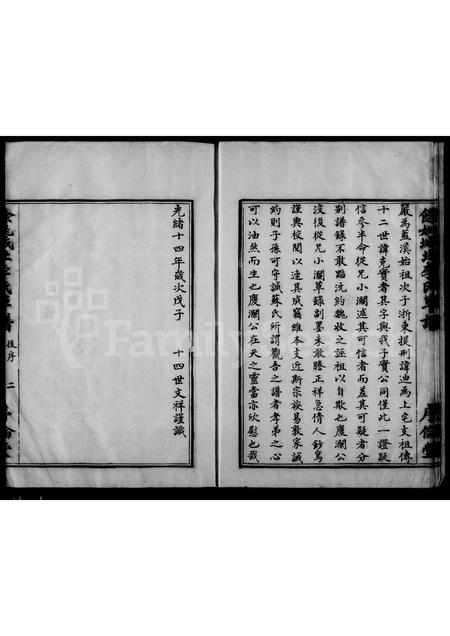 嚴為藍溪始祖次子浙東提刑諱迪為上宅支祖傳
十二世諱克實者其字與我子實公同僅此一證疑
信參半命從兄小瀾述其可信者而差其可疑者分
別譜錄不敢蹈沈約魏收之誣祖以自欺也慶瀾公
沒後從兄小瀾草錄副墨未敢謄正祥急倩人鈔寫
謹與校閱以速其成竊維本支近斯宗族易敦家誡
約則子孫可守誠蘇氏所謂觀吾之譜者孝弟之心
可以油然而生也慶瀾公在天之靈當亦欣慰也哉
光緒十四年歲次戊子 十四世文祥謹識
後序 二
FamilySearch